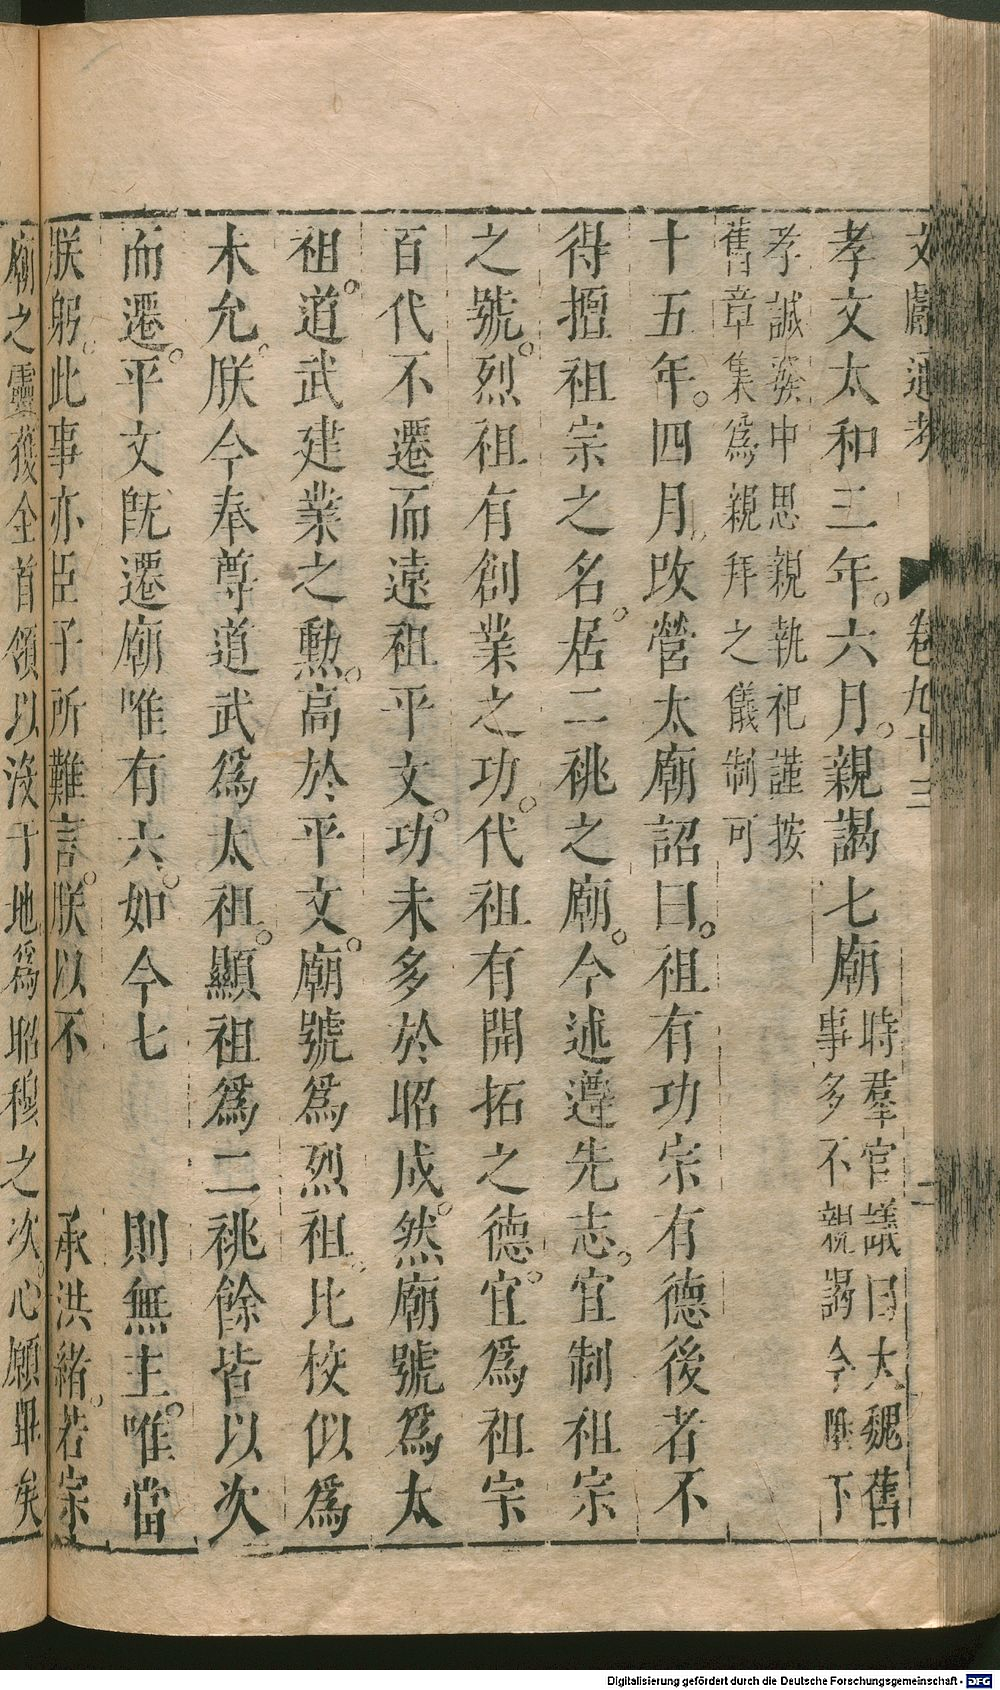 文獻通考 卷九十三 二
孝文太和三年。六月。親謁七廟時羣官議曰大魏舊
事多不親謁今陛下
孝誠發中思親執祀謹按
舊章集爲親拜之儀制可
十五年。四月。改營太廟詔曰。祖有功宗有德後者不
得擅祖宗之名。居二祧之廟。今述遵先志。宜制祖宗
之號。烈祖有創業之功。代祖有開拓之德。宜爲祖宗
百代不遷而遠祖平文。功未多於昭成。然廟號爲太
祖。道武建業之勲。高於平文。廟號爲烈祖。比校似爲
未允。朕今奉尊道武爲太祖。顯祖爲二祧餘皆以次
而遷。平文既遷廟唯有六。如今七 則無主。唯當
朕躬。此事亦臣子所難言。朕以不 承洪緒。若宗
廟之靈獲全首領以沒于地爲昭穆之次。心願畢矣
Digitalisierung gefördert durch die Deutsche Forschungsgemeinschaft - DFG